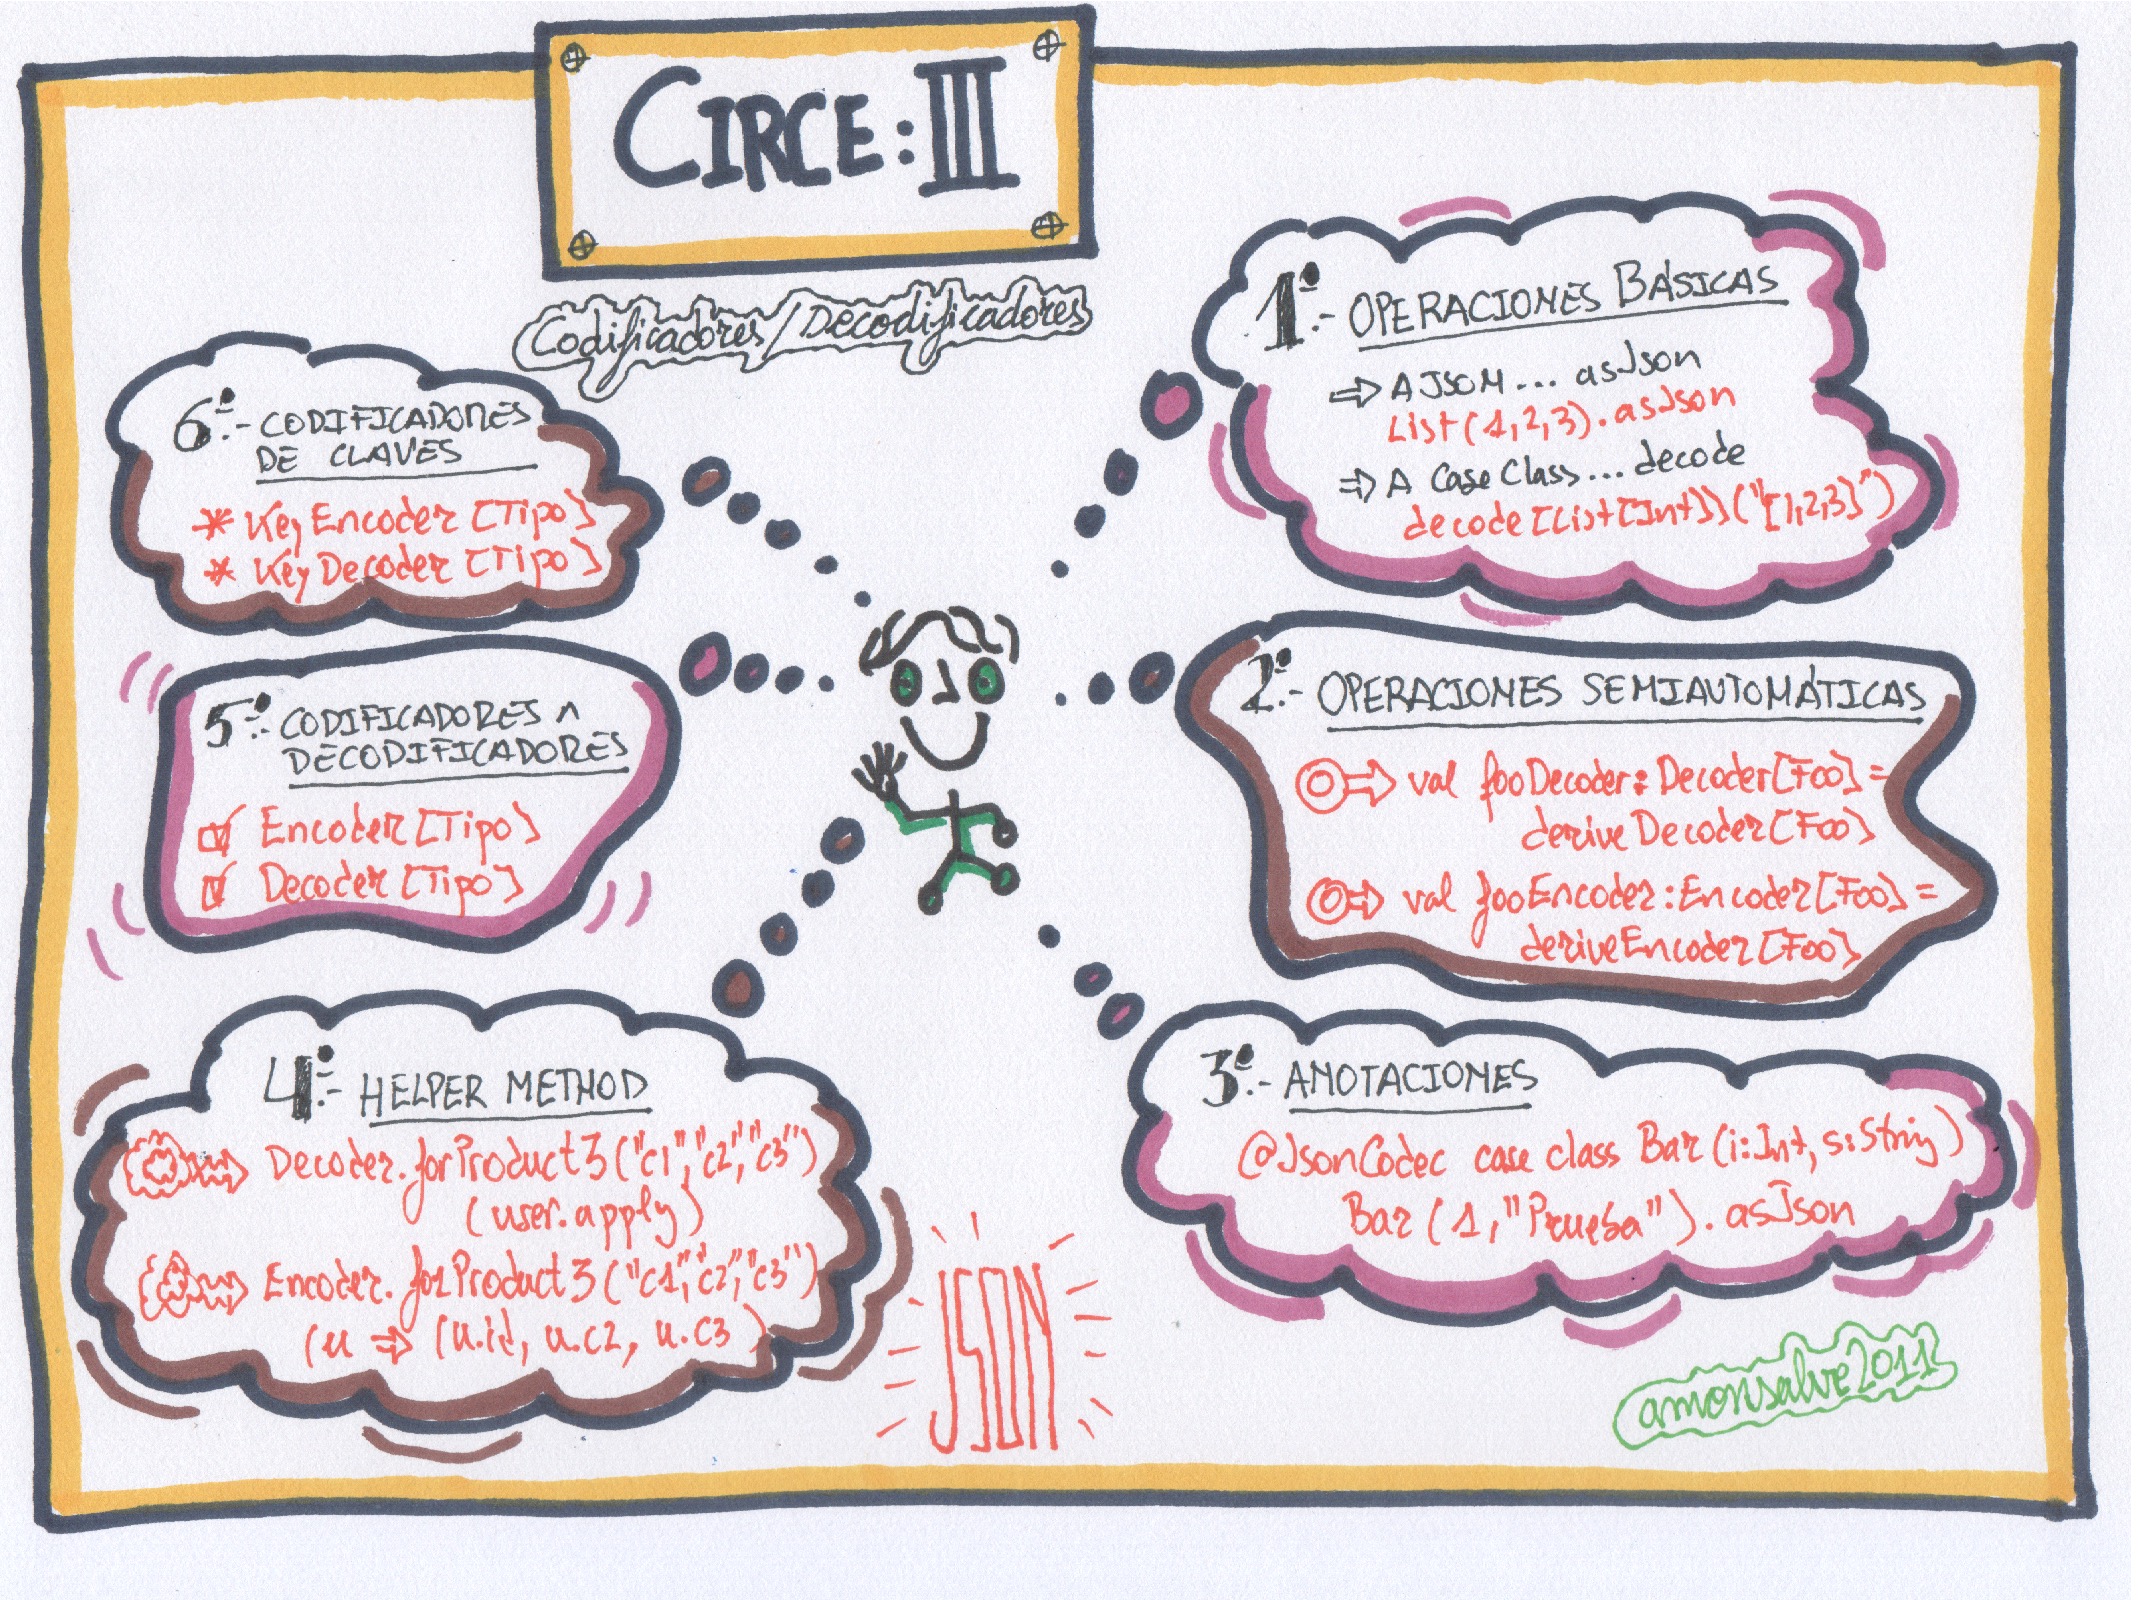 CIRCE: III
Codificadores/Decodificadores
1º.- OPERACIONES BÁSICAS
⇒ A JSON... asJson
List(1,2,3).asJson
⇒ A Case Class... decode
decode[List[Int]]("[1,2,3]")
2º.- OPERACIONES SEMIAUTOMÁTICAS
⇒ val fooDecoder: Decoder[Foo] =
deriveDecoder[Foo]
⇒ val fooEncoder: Encoder[Foo] =
deriveEncoder[Foo]
3º.- ANOTACIONES
@JsonCodec case class Bar(i:Int, s:String)
Bar(1,"Prueba").asJson
4º.- HELPER METHOD
Decoder.forProduct3("c1","c2","c3")
(user.apply)
Encoder.forProduct3("c1","c2","c3")
(u ⇒ (u.id, u.c2, u.c3)
5º.- CODIFICADORES ^
DECODIFICADORES
Encoder[Tipo]
Decoder[Tipo]
6º.- CODIFICADORES
DE CLAVES
* KeyEncoder[Tipo]
* KeyDecoder[Tipo]
JSON
amonsalve2011